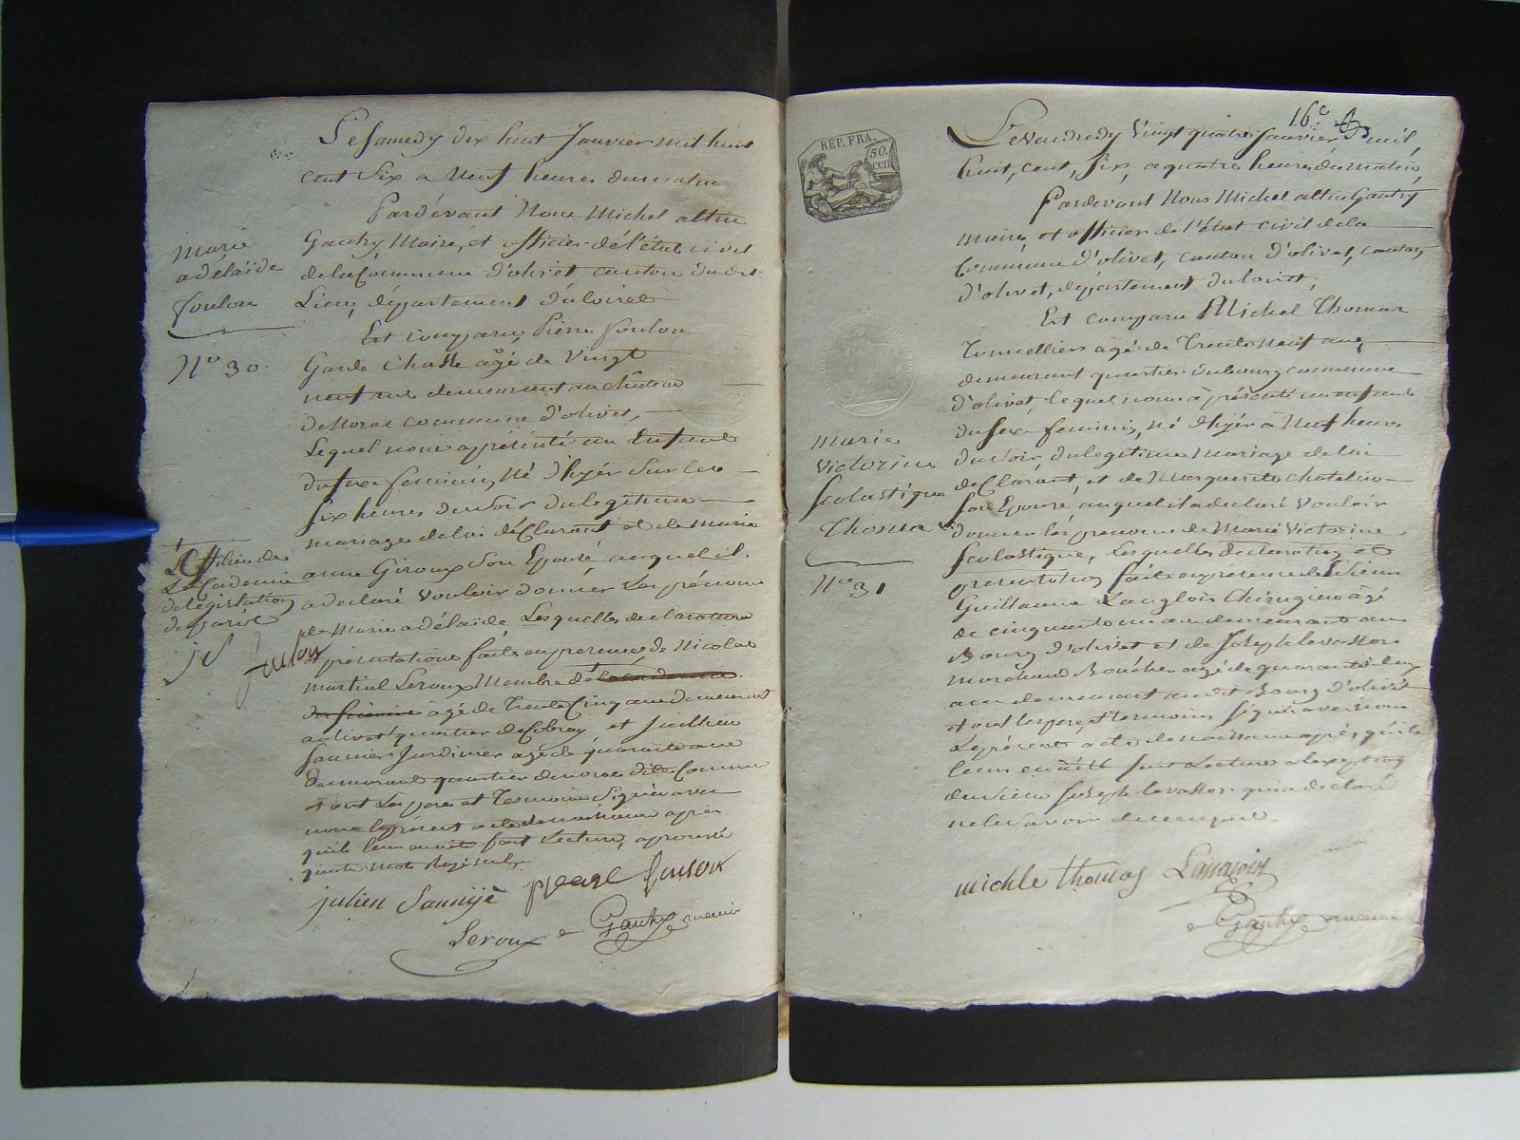 Le Samedy dix huit Janvier mil huit
cent Six a Neuf heures du matin
Pardevant Nous Michel altin
Gautry Maire, et officier de l'état civil
de la Commune d'olivet canton du dit
Lieu, département du loiret
Est comparu, Pierre foulon
Garde Chasse âgé de Vingt
neuf ans demeurant au château
commune d'olivet,
Lequel nous a présenté un Enfant
du sexe féminin, Né d'hyér Sur les
Six heures du soir du legitime
mariage de lui déClarant et de Marie
anne Giroux Son Epouse auquel il
a declaré vouloir donner Les prénoms
de Marie adélaide Lesquelles declaration
et présentation faite en presence de Nicolas
martial Leroux Membre de
âgé de Trente Cinq ans demeurant
a olivet quartier de et Juillien
Jardinier agé de quarante ans
demeurant quartier Commune
et ont Les pere et Temoins Signé avec
nous le présent acte de naissance après
qu'il leur en a été fait Lecture, aprouvé
mots Rayé nuls
marie
adélaide
foulon
Nᵒ 30.
de
L'académie
de législation
de paris
foulon
julien Sauvijé pieare fulon
Leroux Gautry maire
16.e
REP. FRA.
50.
CEN.
Le Vendredy Vingt quatre Janvier mil
huit, cent, six, a quatre heures du matin,
Pardevant Nous Michel altin Gautry
Maire, et officier de l'état civil de la
Commune d'olivet, canton d'olivet, canton
d'olivet, département du loiret,
Est comparu Michel Thomas
Tonnellier âgé de Trente Neuf ans
demeurant quartier du bourg commune
d'olivet, lequel nous a présenté un enfant
du sexe féminin, Né d'hyér à Neuf heures
du soir, du legitime Mariage de lui
déClarant, et de Marguerite
Son Epouse auquel il a declaré Vouloir
donner les prenoms de Marie Victorine
Scolastique, Lesquelles declaration et
presentation faite en présence de Sieur
Guillaume Langlois Chirurgien âgé
de cinquante un ans demeurant au
Bourg d'olivet et de Joseph levassor
marchand Boucher agé de quarante deux
ans demeurant au dit Bourg d'olivet
et ont Les pere, et Temoins Signé avec nous
Le présent acte de naissance après qu'il
leur en a été fait Lecture a l'exception
du Sieur Joseph levassor qui a declaré
ne le savoir de ce enquis.
marie
Victorine
Scolastique
Thomas
Nᵒ 31
michle thomas Langlois
Gautry maire